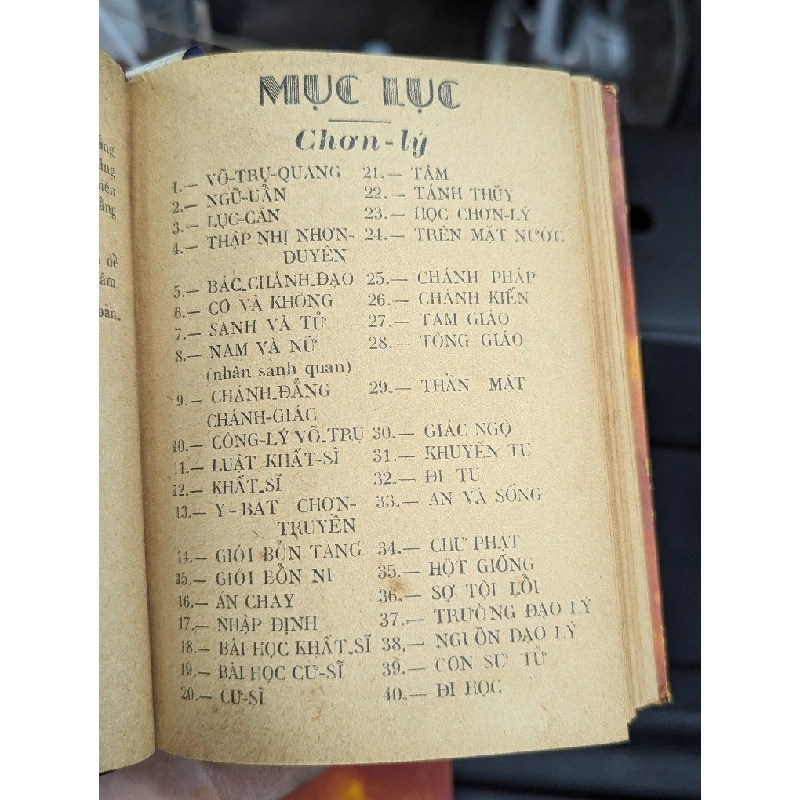 MỤC LỤC
Chơn-lý
1.— VÕ-TRỤ-QUANG
2.— NGŨ-UẨN
3.— LỤC-CĂN
4.— THẬP NHỊ NHƠN-
DUYÊN
5.— BÁC-CHÁNH-ĐẠO
6.— CÓ VÀ KHÔNG
7.— SANH VÀ TỬ
8.— NAM VÀ NỮ
(nhân sanh quan)
9.— CHÁNH-ĐẲNG
CHÁNH-GIÁC
10.— CÔNG-LÝ VÕ-TRỤ
11.— LUẬT KHẤT-SĨ
12.— KHẤT-SĨ
13.— Y-BÁT CHƠN-
TRUYỀN
14.— GIỚI BỔN TĂNG
15.— GIỚI BỔN NI
16.— ĂN CHAY
17.— NHẬP ĐỊNH
18.— BÀI HỌC KHẤT-SĨ
19.— BÀI HỌC CƯ-SĨ
20.— CƯ-SĨ
21.— TÂM
22.— TÁNH THỦY
23.— HỌC CHƠN-LÝ
24.— TRÊN MẶT NƯỚC
25.— CHÁNH PHÁP
26.— CHÁNH KIẾN
27.— TAM GIÁO
28.— TÔNG GIÁO
29.— THẦN MẬT
30.— GIÁC NGỘ
31.— KHUYẾN TU
32.— ĐI TU
33.— ĂN VÀ SỐNG
34.— CHƯ PHẬT
35.— HỘT GIỐNG
36.— SỢ TỘI LỖI
37.— TRƯỜNG ĐẠO LÝ
38.— NGUỒN ĐẠO LÝ
39.— CON SƯ TỬ
40.— ĐI HỌC